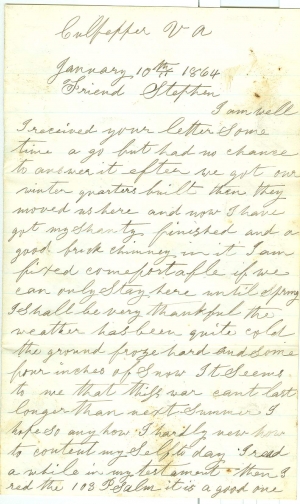 Culpepper V A
January 10th 1864
Friend Stephen
I am well
I received your letter some
time a go but had no chance
to answer it after we got our
winter quarters built then they
moved us here and now I have
got my Shanty finished and a
good brick chimney in it I am
fixed comeportafle if we
can only stay here until Spring
I shall be very thankful the
weather has been quite cold
the ground froze hard and some
four inches of snow It seems
to me that this war cant last
longer than next Summer I
hope so any how I hardly now how
to content my self to day I read
a while in my testament then I
red the 103 Psalm it is a good one